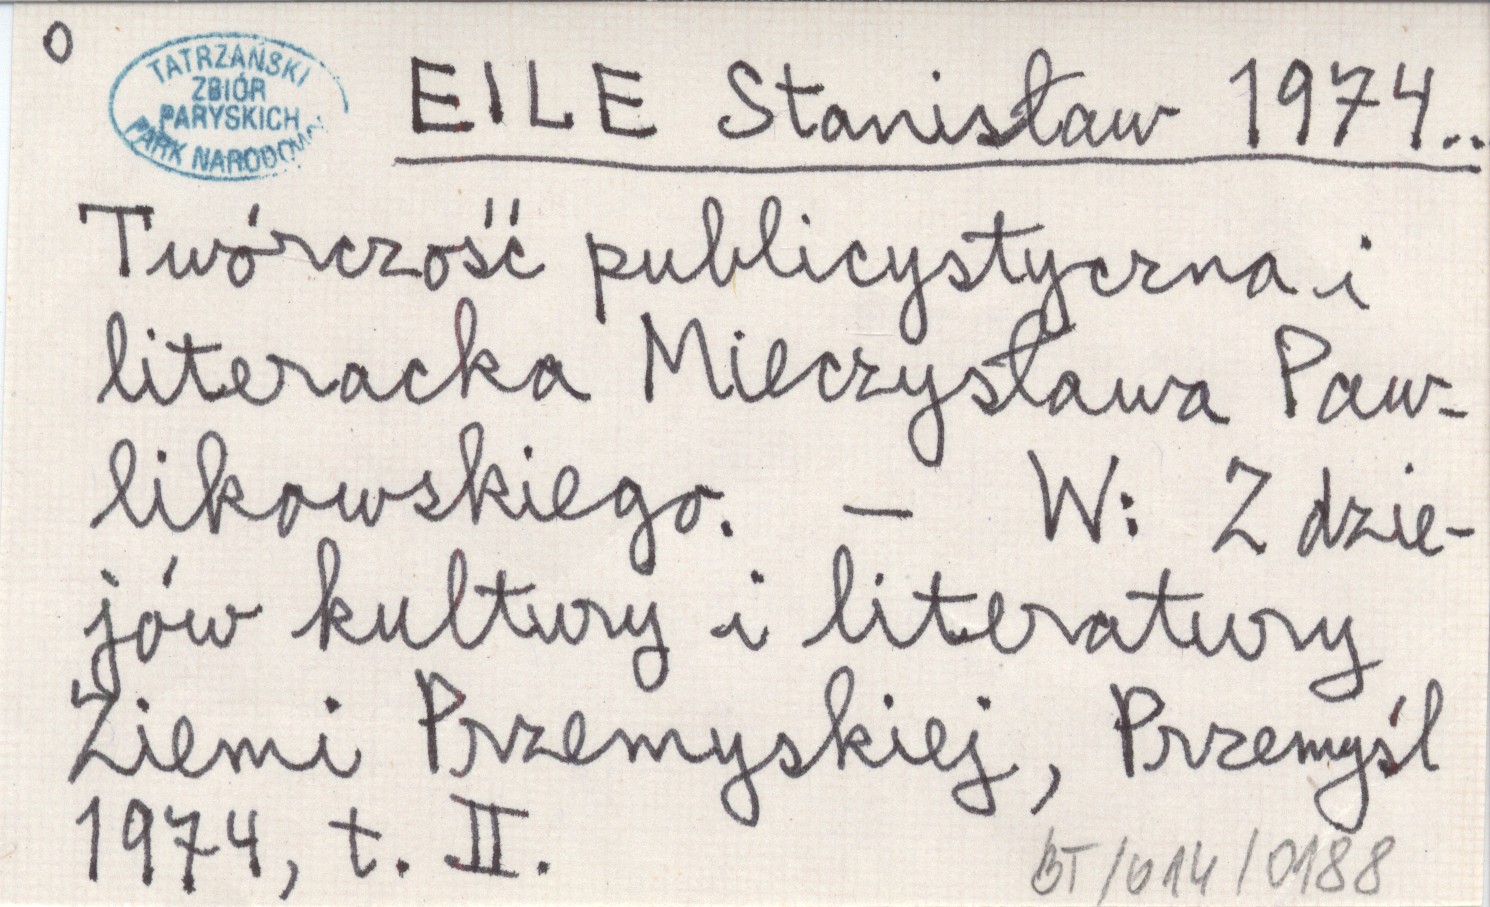 O
TATRZAŃSKI
ZBIÓR
PARYSKICH
PARK NARODOWY
EILE Stanisław 1974..
Twórczość publicystyczna i
literacka Mieczysława Paw-
likowskiego. — W: Z dzie-
jów kultury i literatury
Ziemi Przemyskiej, Przemyśl
1974, t. II.
BT/614/0188